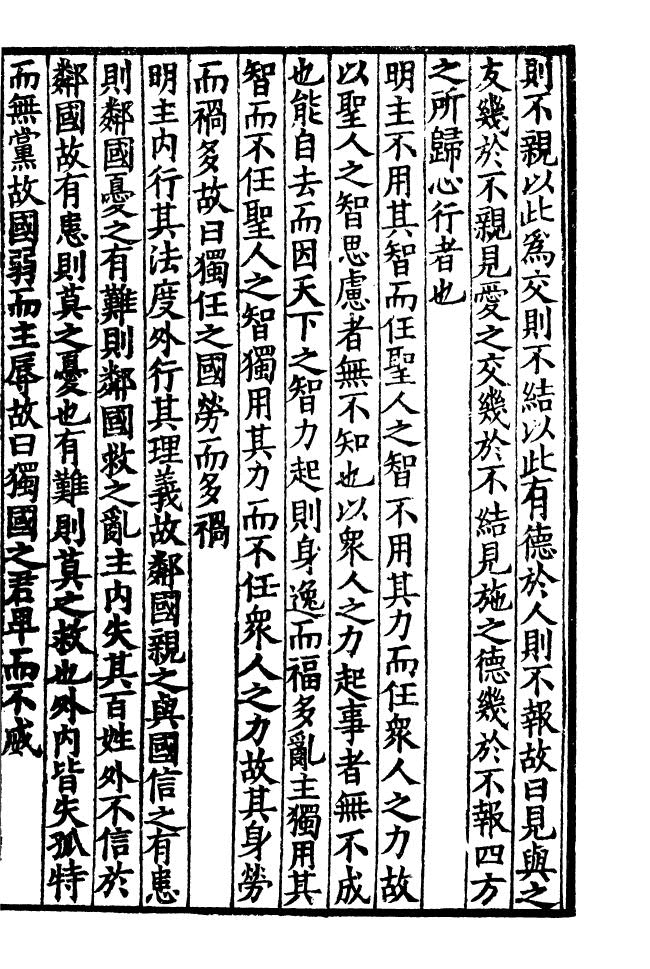 則不親以此爲交則不結以此有德於人則不報故曰見與之
友幾於不親見愛之交幾於不結見施之德幾於不報四方
之所歸心行者也
明主不用其智而任聖人之智不用其力而任衆人之力故
以聖人之智思慮者無不知也以衆人之力起事者無不成
也能自去而因天下之智力起則身逸而福多亂主獨用其
智而不任聖人之智獨用其力而不任衆人之力故其身勞
而禍多故曰獨任之國勞而多禍
明主内行其法度外行其理義故鄰國親之與國信之有患
則鄰國憂之有難則鄰國救之亂主内失其百姓外不信於
鄰國故有患則莫之憂也有難則莫之救也外内皆失孤特
而無黨故國弱而主辱故曰獨國之君卑而不威